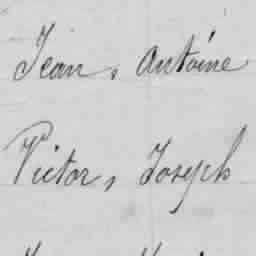 Jean, Antoine
Victor, Joseph